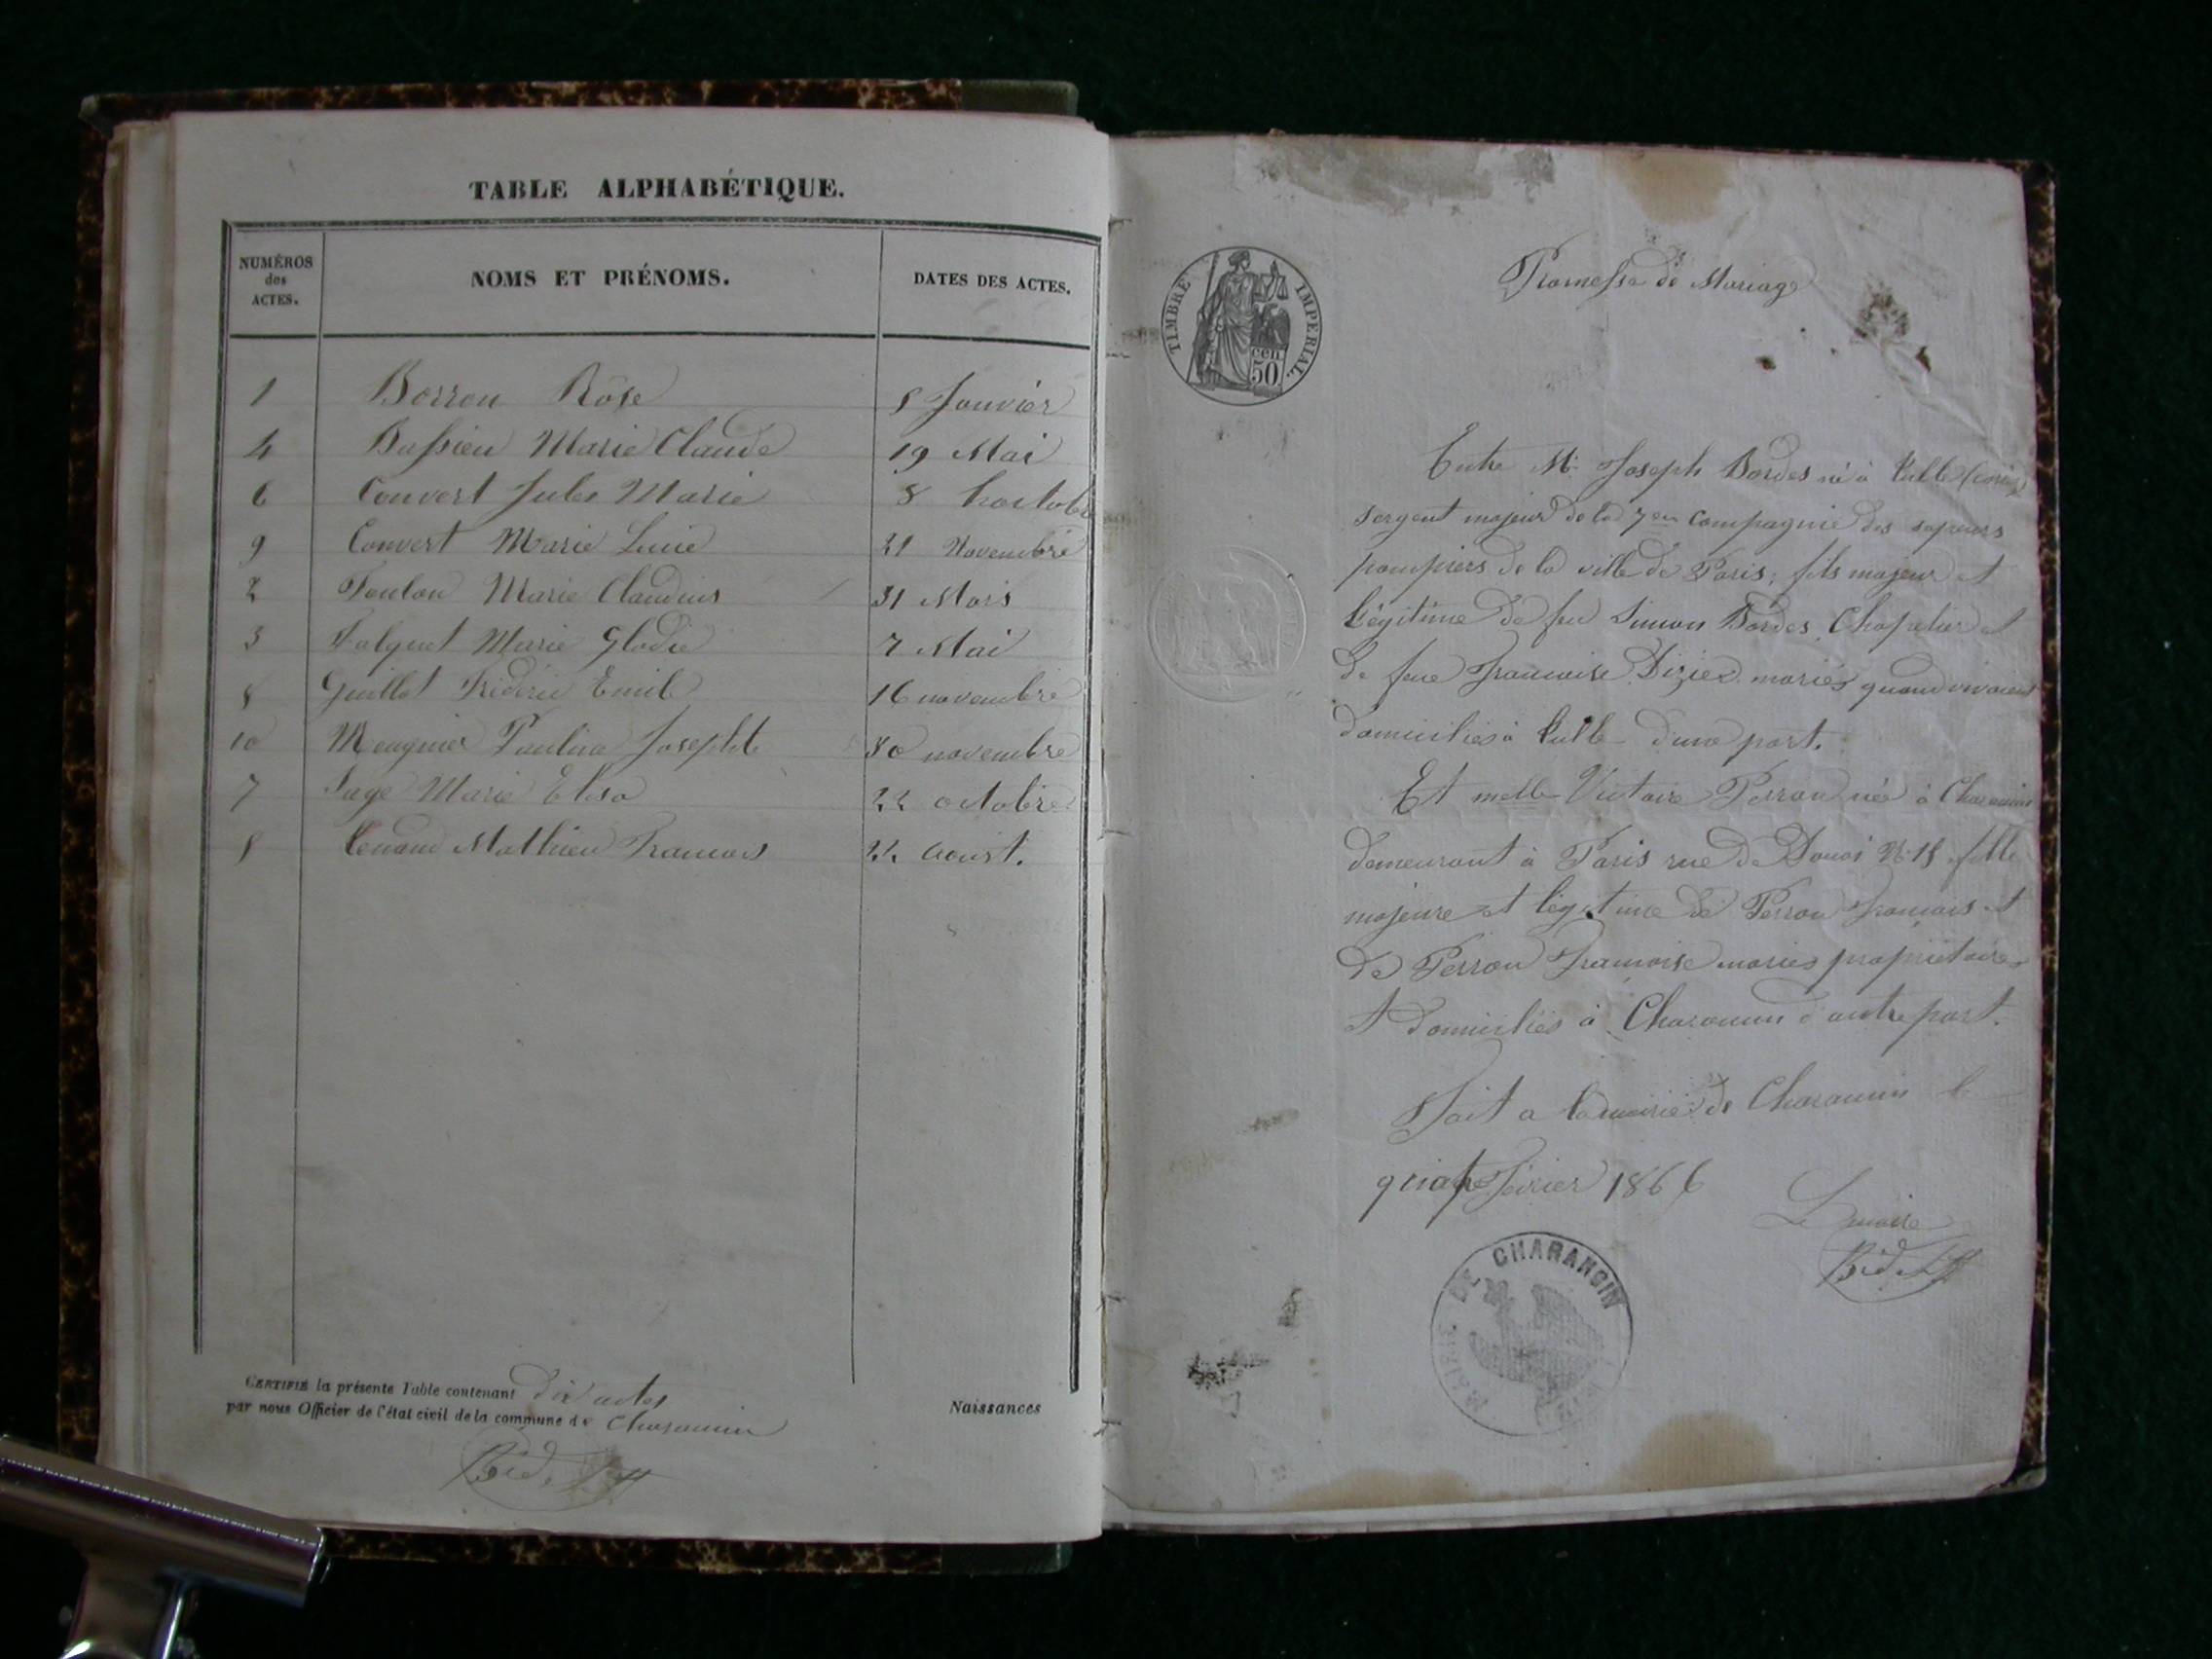 TABLE ALPHABÉTIQUE.
NUMÉROS des ACTES.
NOMS ET PRÉNOMS.
DATES DES ACTES.
1 Borron Rose 5 Janvier
4 Bussieu Marie Claude 19 Mai
6 Convert Jules Marie 8 hoctobr
9 Convert Marie Lucie 21 Novembre
2 Foulon Marie Claudius 31 Mars
3 Falquet Marie Glodie 7 Mai
8 Guillot Frideric Emile 16 novembre
10 Meugnier Paulina Josephte 30 novembre
7 Sage Marie Elisa 22 octobre
5 Mathieu Francois 22 Aoust.
CERTIFIÉ la présente Table contenant dix actes
par nous Officier de l'état civil de la commune de Charancin
Naissances
TIMBRE IMPERIAL.
50 cen
Promesse de Mariage
Entre Mr Joseph Bordes né à Tulle
sergent majeur de la 7em Compagnie des sapeurs
pompiers de la ville de Paris, fils majeur et
légitime de feu Simon Bordes Chapelier et
de feue Francoise mariés quand vivaient
domiciliés à Tulle d'une part.
Et melle Victoire Perron née à Charancin
demeurant à Paris rue de Douai N° 15 fille
majeure et légitime de Perron Francois et
de Perron Francoise mariés propriétaires
et domiciliés à Charancin d'autre part.
Fait a la mairie de Charancin le
quatre Février 1866
Le maire
MAIRIE DE CHARANCIN